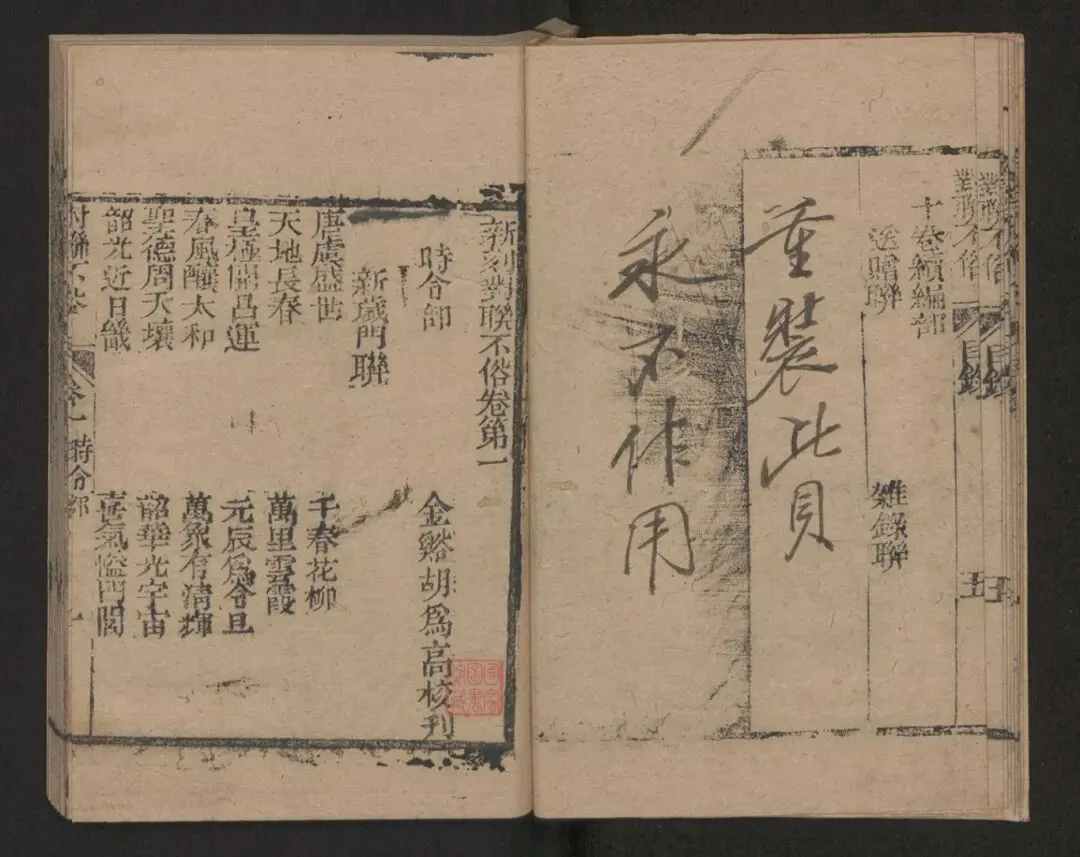 十卷續編部
送贈聯
雜錄聯
五
重裝此頁
永不作用
新刻對聯不俗卷第一
時令部
金谿胡爲高校刊
新歲門聯
唐虞盛世
千春花柳
天地長春
萬里雲霞
皇極開昌運
元辰爲令旦
春風釀太和
萬象有淸輝
聖德周天壤
韶華光宇宙
韶光近日畿
喜氣溢門閭
對聯不俗
卷一
時令部
一